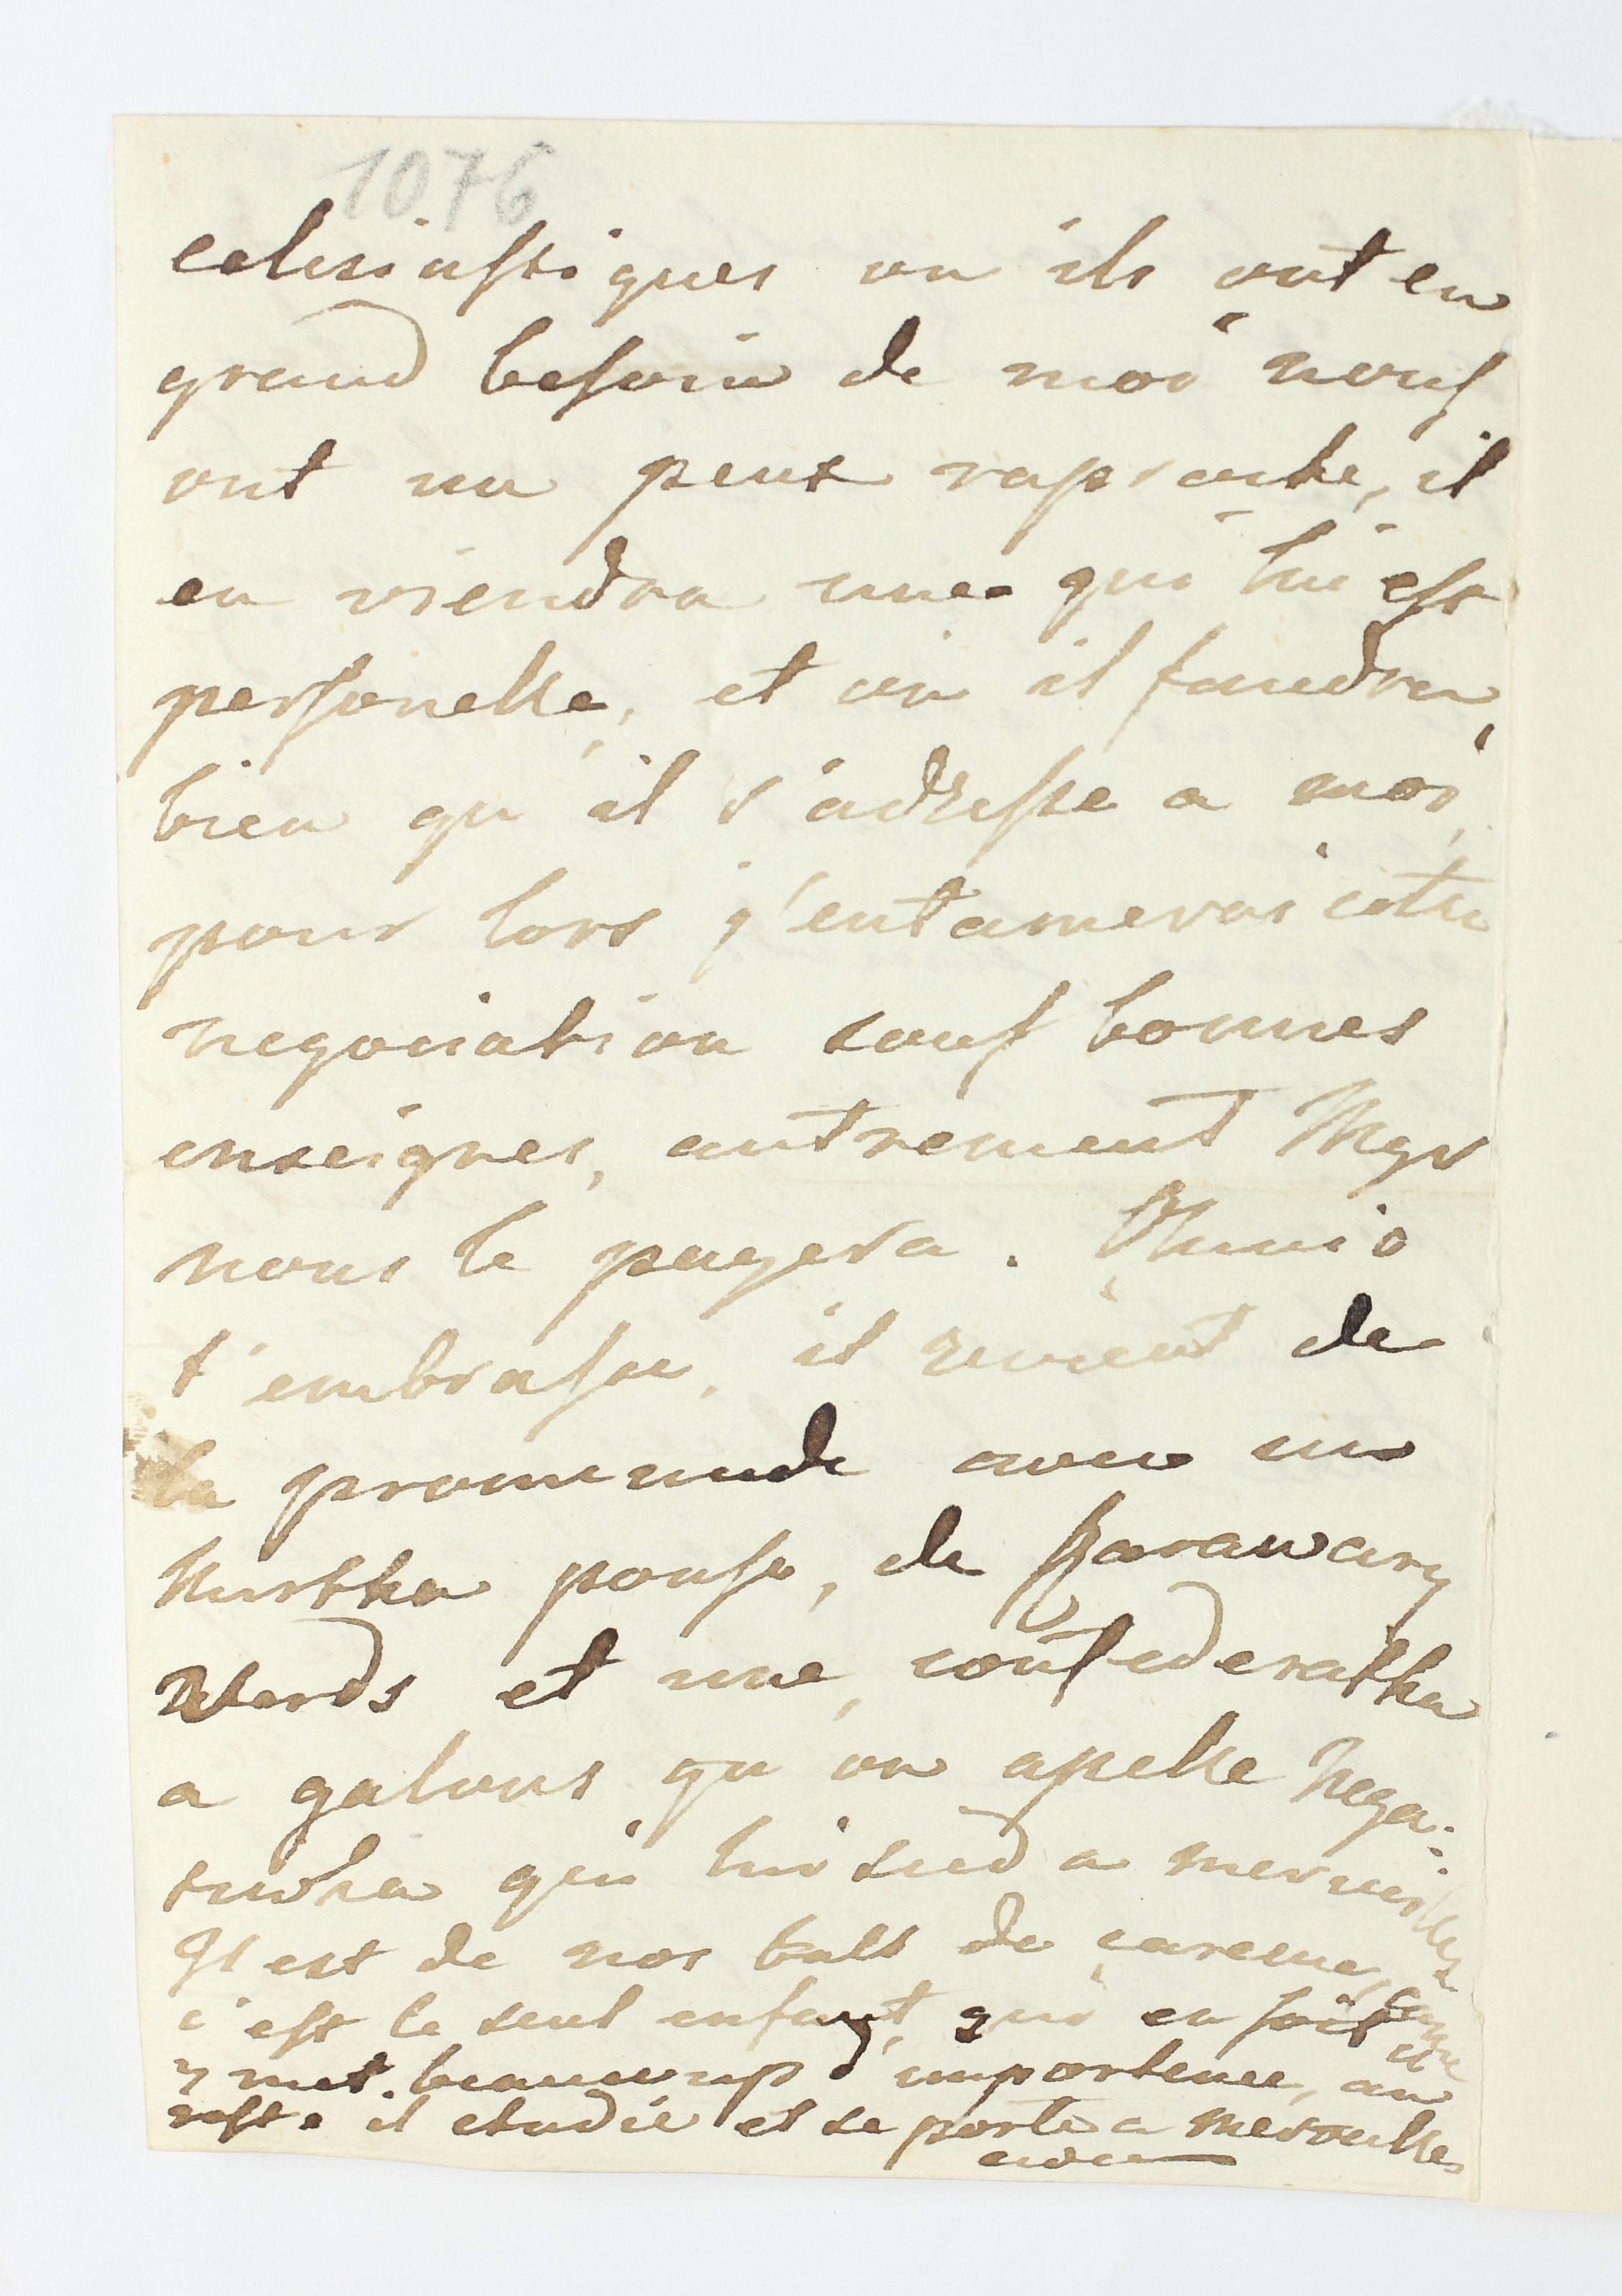 1076
eclesiastiques ou ils ont eu
grand besoin de moi nous
ont un peut raproche, il
en viendra une qui lui est
personelle, et ou il faudra
bien qu'il s'adresse a moi,
pour lors j'entamerai cette
negociation souf bonnes
enseignes, autrement Mgr
nous le payera.
t'embrasse, il revient de
la promenade avec un
kurtka ponso, de szarawary
et une confederatka
a galons qu'on apelle Rega-
tivka qui lui sied a merveilles
Il est de nos bals de careme, comme
c'est le seul enfant, qui en soit il
y met beaucoup d'importence, au
reste il etudie et se porte a merveilles
adieu